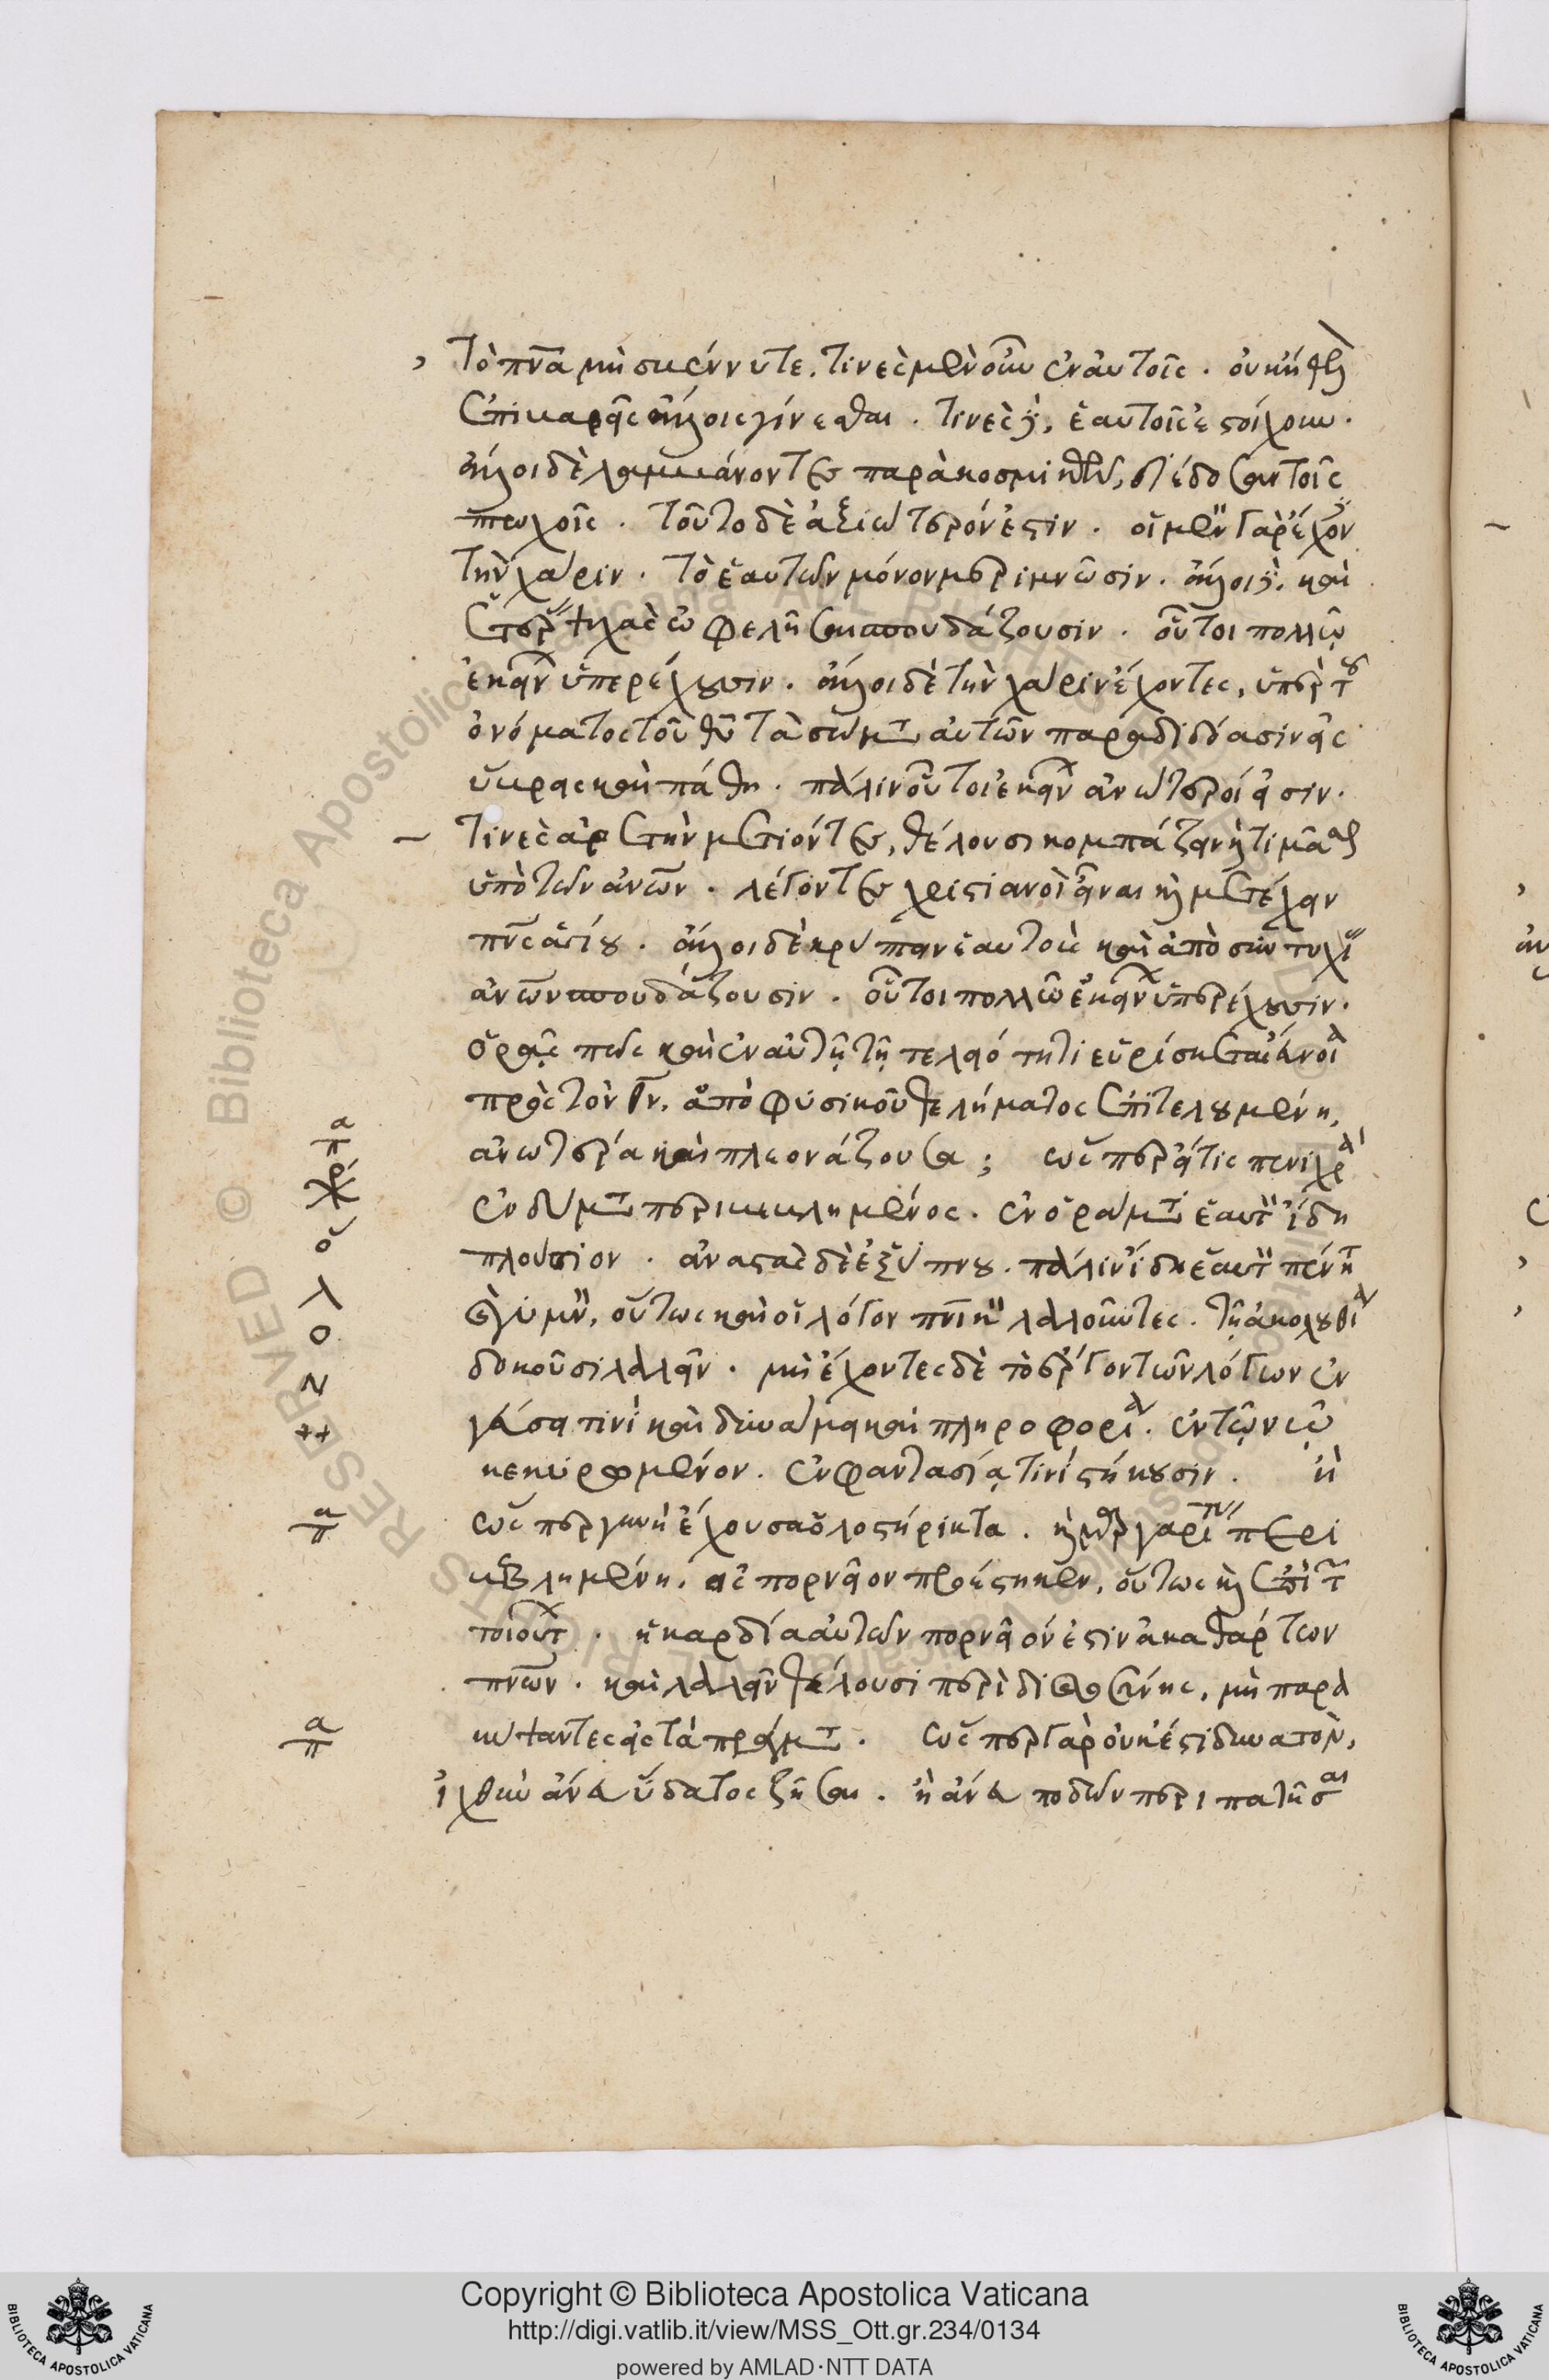 τὸ πν̅α μὴ σβέννυτε. τινὲς μὲν οὖν ἐν αὐτοῖς. οὐκ ἤθελ
ἐπιβαρεῖς ἄλλοις γίνεσθαι. τινὲς δὲ, ἑαυτοῖς ἐστοίχουν.
ἄλλοι δὲ λαμβάνοντες παρὰ κοσμικῶν, διέδοσαν τοῖς
πτωχοῖς. τοῦτο δὲ ἀξιώτερόν ἐστιν. οἱ μὲν γὰρ ἔχον
τὴν χάριν. τὸ ἑαυτῶν μόνον μεριμνῶσιν. ἄλλοι δὲ. καὶ
ἑτέρ ψυχὰς ὠφελῆσαι σπουδάζουσιν. οὗτοι πολλῷ
ἐκείν ὑπερέχουσιν. ἄλλοι δὲ τὴν χάριν ἔχοντες, ὑπὲρ τοῦ
ὀνόματος τοῦ θυ̅ τὰ σώματ αὐτῶν παραδιδόασιν εἰς
ὕβρεις καὶ πάθη. πάλιν οὗτοι ἐκείν ἀνώτεροί εἰσιν.
τινὲς ἀρετὴν μετιόντες, θέλουσι κομπάζειν καὶ τιμᾶσθ
ὑπὸ τῶν ἀν̅ων. λέγοντες χριστιανοὶ εἶναι καὶ μετέχειν
πν̅ς ἁγίου. ἄλλοι δὲ κρύπτειν ἑαυτοὺς καὶ ἀπὸ συντυχί
ἀν̅ων σπουδάζουσιν. οὗτοι πολλῷ ἐκείν ὑπερέχουσιν.
ὁρᾷς πῶς καὶ ἐν αὐτῇ τῇ τελειότητι εὑρίσκεται εὔνοια
πρὸς τὸν θν̅. ἀπὸ φυσικοῦ θελήματος ἐπιτελουμένη,
ἀνωτέρα καὶ πλεονάζουσα; ὥσπερ εἴ τις πενιχρὰ
ἐνδύματ περιβεβλημένος. ἐν ὁράματι ἑαυτὸν ἴδῃ
πλούσιον. ἀναστὰς δὲ ἐξ ὕπνου. πάλιν ἴδῃ ἑαυτὸν πένητ
καὶ γυμν, οὕτως καὶ οἱ λόγον πν̅ικ λαλοῦντες. τῇ ἀκολουθίᾳ
δοκοῦσι λαλεῖν. μὴ ἔχοντες δὲ τὸ ἔργον τῶν λόγων ἐν
γεύσει τινὶ καὶ δυνάμει καὶ πληροφορίᾳ. ἐν τῷ νῷ
κεκυρωμένον. ἐν φαντασίᾳ τινὶ στήκουσιν. ἢ
ὥσπερ γυνὴ ἔχουσα ὁλοσήρικτα. καὶ μαργαρίτ περι
βεβλημένη. εἰς πορνεῖον προέστηκεν, οὕτως καὶ ἐπὶ τῶν
τοιούτ. ἡ καρδία αὐτῶν πορνεῖόν ἐστιν ἀκαθάρτων
πν̅ων. καὶ λαλεῖν θέλουσι περὶ δικαιοσύνης, μὴ παρα
κύψαντες εἰς τὰ πράγματ. ὥσπερ γὰρ οὐκ ἔστι δυνατὸν,
ἰχθὺν ἄνευ ὕδατος ζῆσαι. ἢ ἄνευ ποδῶν περιπατῆσαι
Copyright © Biblioteca Apostolica Vaticana
http://digi.vatlib.it/view/MSS_Ott.gr.234/0134
powered by AMLAD·NTT DATA